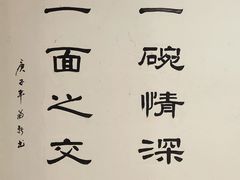 一碗情深
一面之交
庚子年